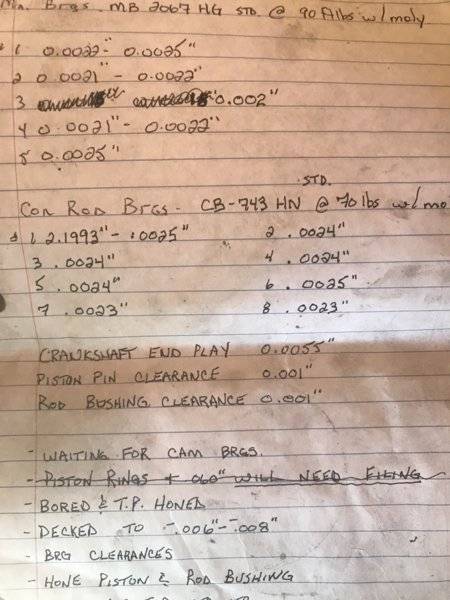 Mn. Brgs. MB 2067 HG STD. @ 90 ftlbs w/moly
# 1 0.0022"- 0.0025"
2 0.0021" - 0.0022"
3 0.002"
4 0.0021"- 0.0022"
5 0.0025"
STD.
Con Rod Brgs - CB-743 HN @ 70 lbs w/mo
# 1 2.1993"- .0025" 2 .0024"
3 .0024" 4 .0024"
5 .0024" 6 .0025"
7 .0023" 8 .0023"
CRANKSHAFT END PLAY 0.0055"
PISTON PIN CLEARANCE 0.001"
ROD BUSHING CLEARANCE 0.001"
- WAITING FOR CAM BRGS.
- PISTON RINGS + .060" WILL NEED FILING
- BORED & T.P. HONED
- DECKED TO -.006"- -.008"
- BRG CLEARANCES
- HONE PISTON & ROD BUSHING